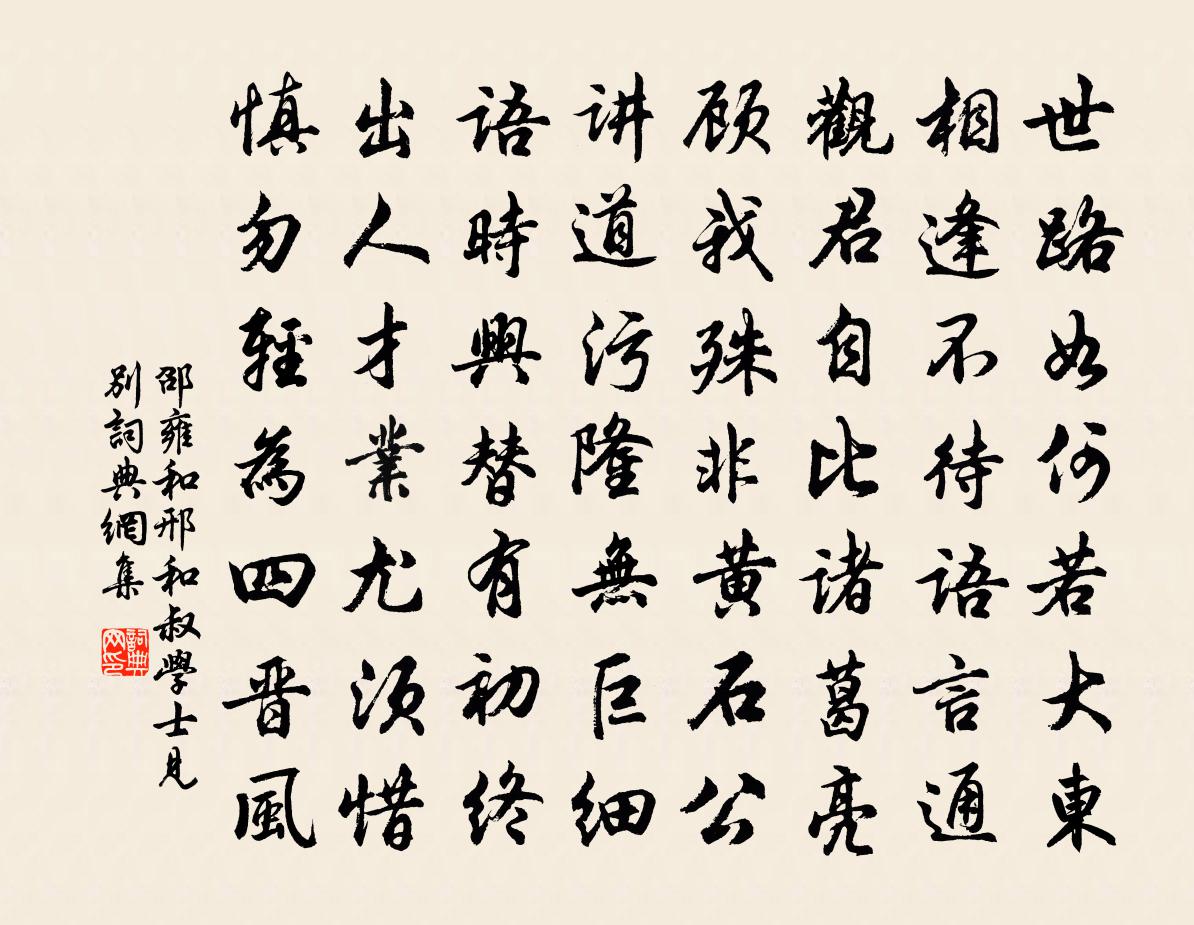 世路如何若大東
相逢不待語言通
觀君自比諸葛亮
顾我殊非黃石公
讲道污隆無巨細
語時興替有初終
出人才業尤須惜
慎勿輕為四晋風
邵雍和邢和叔學士見
別詞典網集
詞典网印